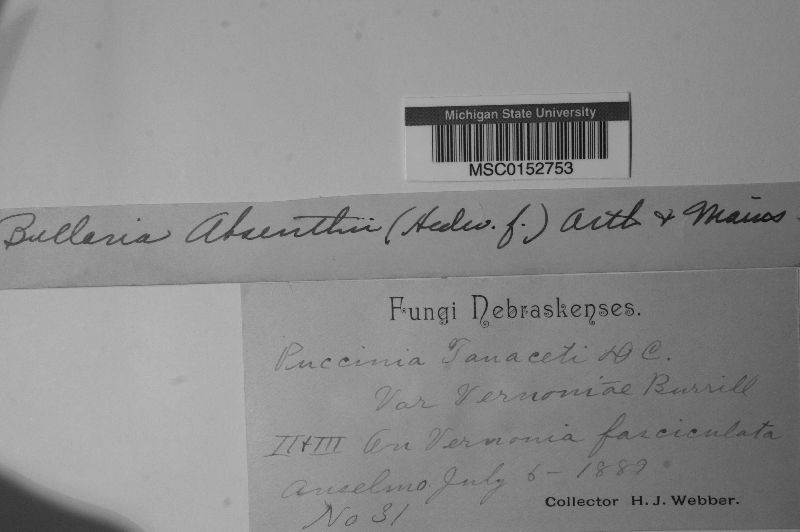 Michigan State University
MSC0152753
Bullaria Absenthii (Hedw. f.) Arth & Mains
Fungi Nebraskenses.
Puccinia Tanaceti DC.
Var Vernoniae Burrill
II+III On Vernonia fasciculata
Anselmo. July 6- 1889
No 31
Collector H. J. Webber.